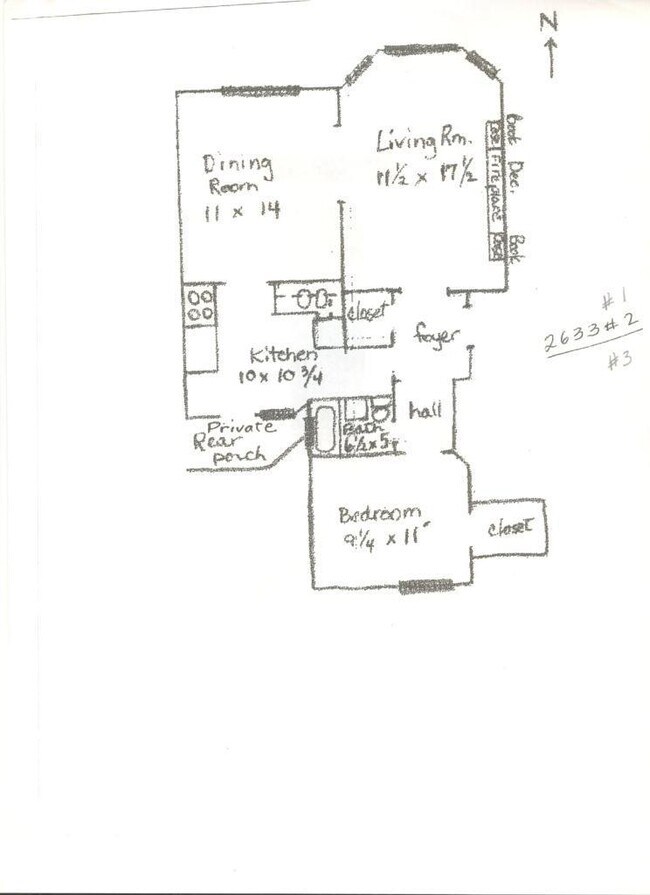 N
Living Rm.
11 1/2 x 17 1/2
Dining
Room
11 x 14
Book
Case
Dec.
Fireplace
Book
Case
closet
foyer
#1
2633#2
#3
Kitchen
10 x 10 3/4
hall
Bath
6 1/2 x 5
Private
Rear
porch
Bedroom
9 1/4 x 11"
closet